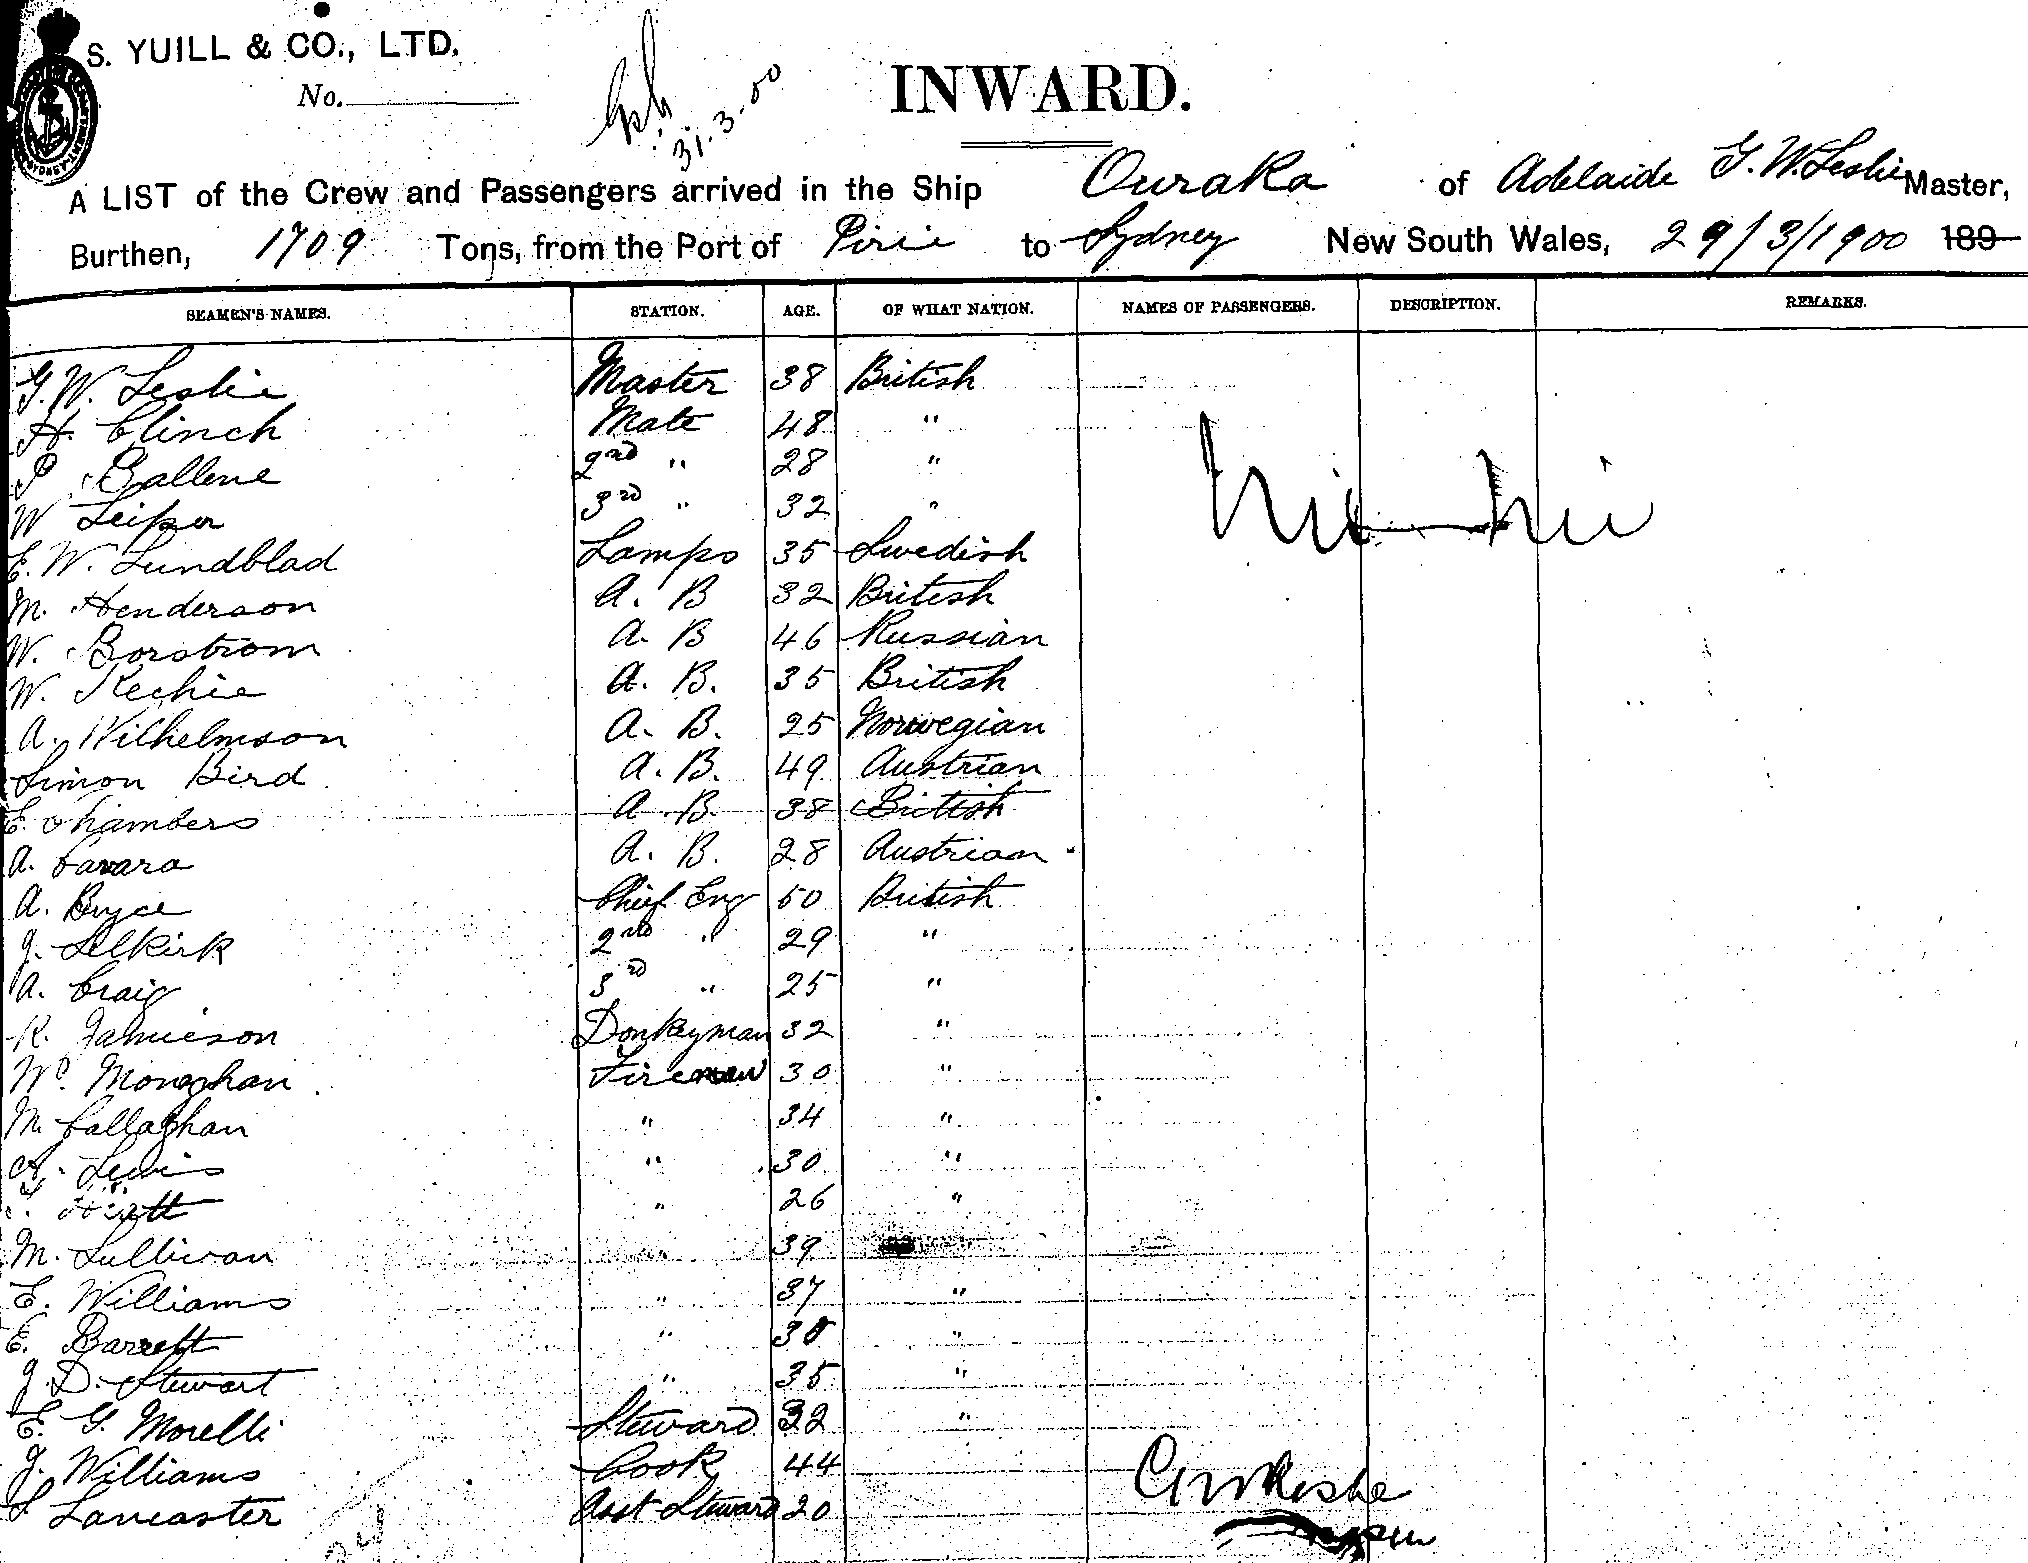 S. YUILL & CO., LTD.
No.
31.3.00
INWARD.
A LIST of the Crew and Passengers arrived in the Ship Ouraka of Adelaide G. W. Leslie Master,
Burthen, 1709 Tons, from the Port of Pirie to Sydney New South Wales, 29/3/1900 189
SEAMEN'S NAMES. STATION. AGE. OF WHAT NATION. NAMES OF PASSENGERS. DESCRIPTION. REMARKS.
G. W. Leslie Master 38 British
H. Clinch Mate 48 "
P Ballene 2nd " 28 "
W Leiper 3rd " 32 "
E. W. Lundblad Lamps 35 Swedish
M. Henderson A. B 32 British
W. Borstrom A. B 46 Russian
W. Kechie A. B. 35 British
A. Wilhelmson A. B. 25 Norwegian
Simon Bird A. B. 49 Austrian
E. Chambers A. B. 38 British
A. Cavara A. B. 28 Austrian
A. Bryce Chief Eng 50 British
J. Selkirk 2nd " 29 "
A. Craig 3rd " 25 "
R. Jamieson Donkeyman 32 "
Wm. Monaghan Fireman 30 "
M. Callaghan " 34 "
Lewis " 30 "
Hiatt " 26 "
M. Sullivan " 39
E. Williams " 37 "
E. Barrett " 30 "
J. D. Stewart " 35 "
E. G. Morelli Steward 32 "
J. Williams Cook 44
S Lancaster Asst Steward 20
Nil Nil
GW Leslie